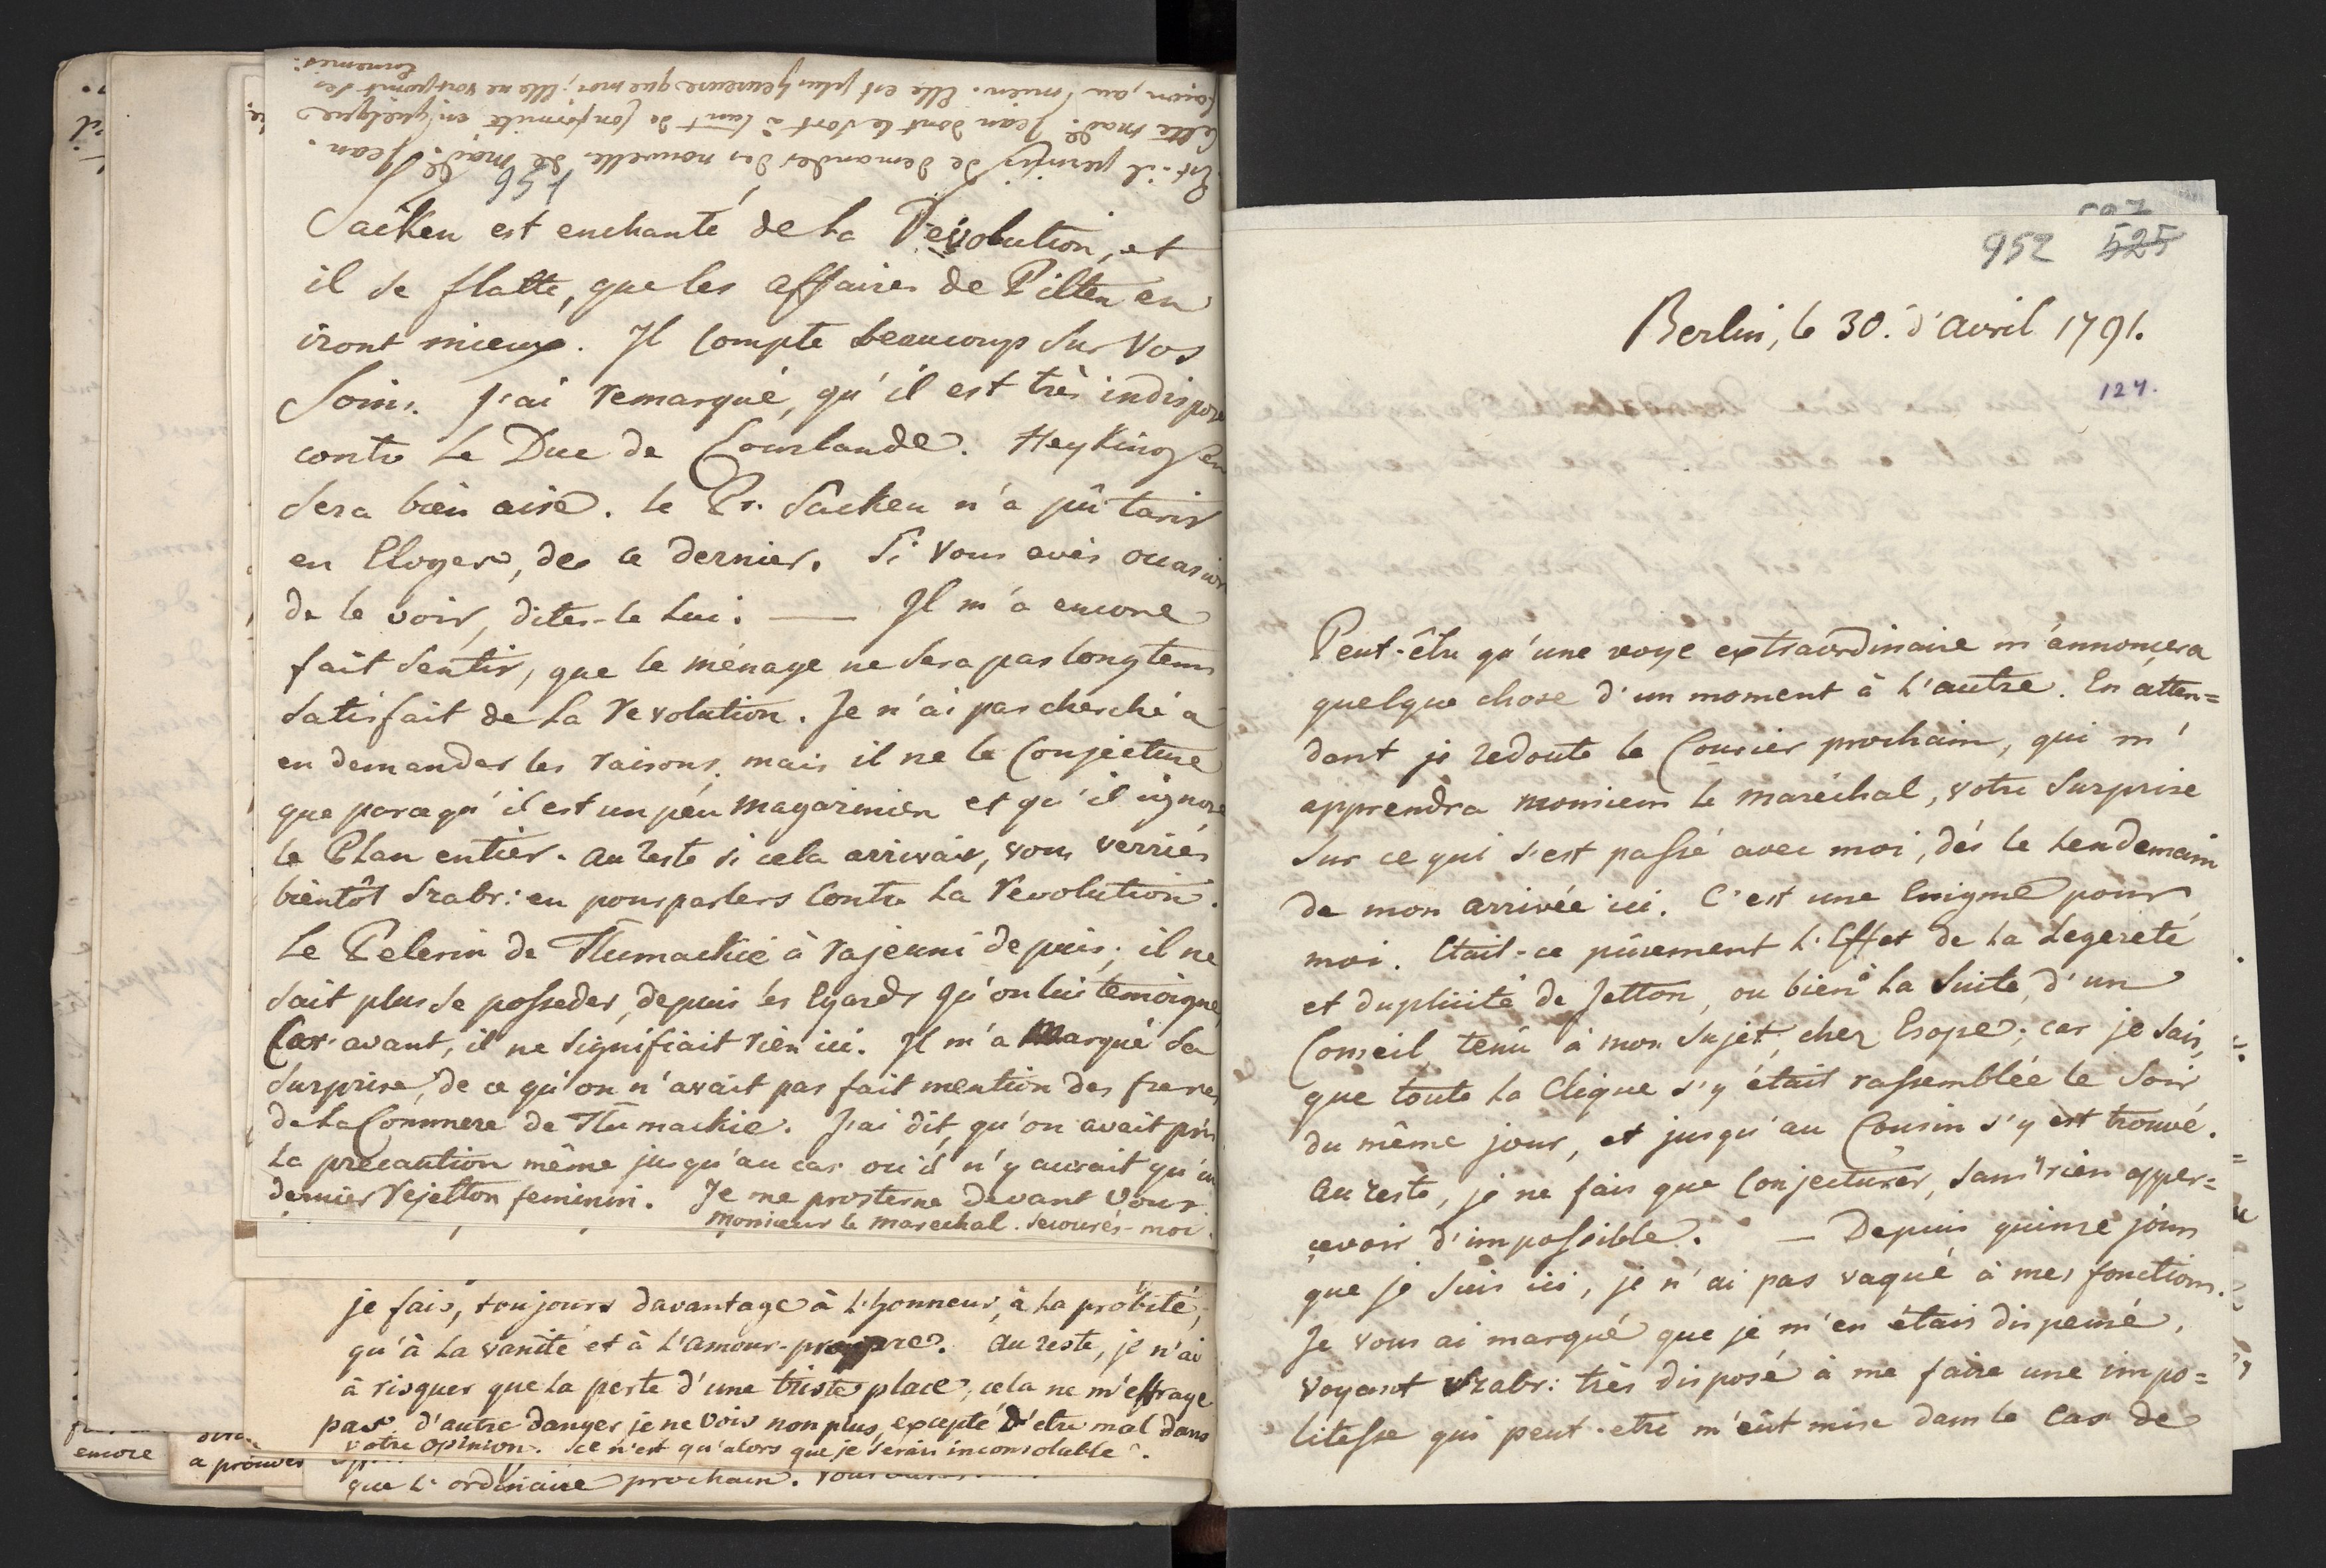 Est-il permis de demander des nouvelles de made. Jean.
Cette made. Jean dont le sort à tant de conformité en quelque
façon, au mien. Elle est plus heureuse que moi; Elle ne voit point ses
Ennemis.
456
Sacken est enchanté de la Revolution, et
il se flatte, que les affaires de Pilten en
iront mieux. Jl compte beaucoup sur vos
Soins. J'ai remarqué, qu'il est très indisposé
contre le Duc de Courlande. Heyking en
sera bien aise. le Pr. Sacken n'a pû tarir
en Eloges, de ce dernier. Si vous avés occasion
de le voir, dites-le lui. — Jl m'a encore
fait sentir, que le ménage ne sera pas longtems
satisfait de la revolution. Je n'ai pas cherché a
en demander les raisons, mais il ne le Conjecture
que parcequ'il est un peu magazinier et qu'il ignore
le Plan entier. au reste si cela arrivait, vous verriés
bientôt Szabr: en pourparlers contre la revolution.
Le Pelerin de Tlumackie à rajeuni depuis; il ne
sait plus se posseder, depuis les Egards qu'on lui temoigne,
Car avant, il ne signifiait rien ici. Jl m'a marqué sa
surprise, de ce qu'on n'avait pas fait mention des freres
de la Commere de Tlumackie. J'ai dit, qu'on avait pris
la precaution même jusqu'au cas où il n'y aurait qu'un
dernier rejetton feminin. Je me prosterne devant vous
Monsieur le marechal. Secourés-moi.
je fais, toujours davantage à l'honneur, à la probité,
qu'à la vanité et à l'amour-propre. au reste, je n'ai
à risquer que la perte d'une triste place, cela ne m'effraye
pas. d'autre danger je ne vois non plus, excepté d'être mal dans
votre opinion. Ce n'est qu'alors que je serais inconsolable.
que l'ordinaire prochain.
encore
a prouver
952 525
Berlin, le 30. d'avril 1791.
124.
Peut-être qu'une voye extraordinaire m'annoncera
quelque chose d'un moment à l'autre. En atten=
dant je redoute le Courier prochain, qui m'
apprendra monsieur le maréchal, votre surprise
sur ce qui s'est passé avec moi, dés le lendemain
de mon arrivée ici. C'est une Enigme pour
moi. Etait-ce purement l'Effet de la Legereté
et duplicité de Jetton, ou bien la Suite d'un
Conseil tenû à mon sujet, chez Esope; car je sais,
que toute la Clique s'y était rassemblée le soir
du même jour, et jusqu'au Cousin s'y est trouvé.
au reste, je ne fais que Conjecturer, sans rien apper=
cevoir d'impossible. — Depuis quinze jours
que je suis ici, je n'ai pas vaqué à mes fonctions.
Je vous ai marqué que je m'en étais dispensé,
voyant Szabr: très disposé à me faire une impo=
litesse qui peut-etre m'eût mise dans le Cas de